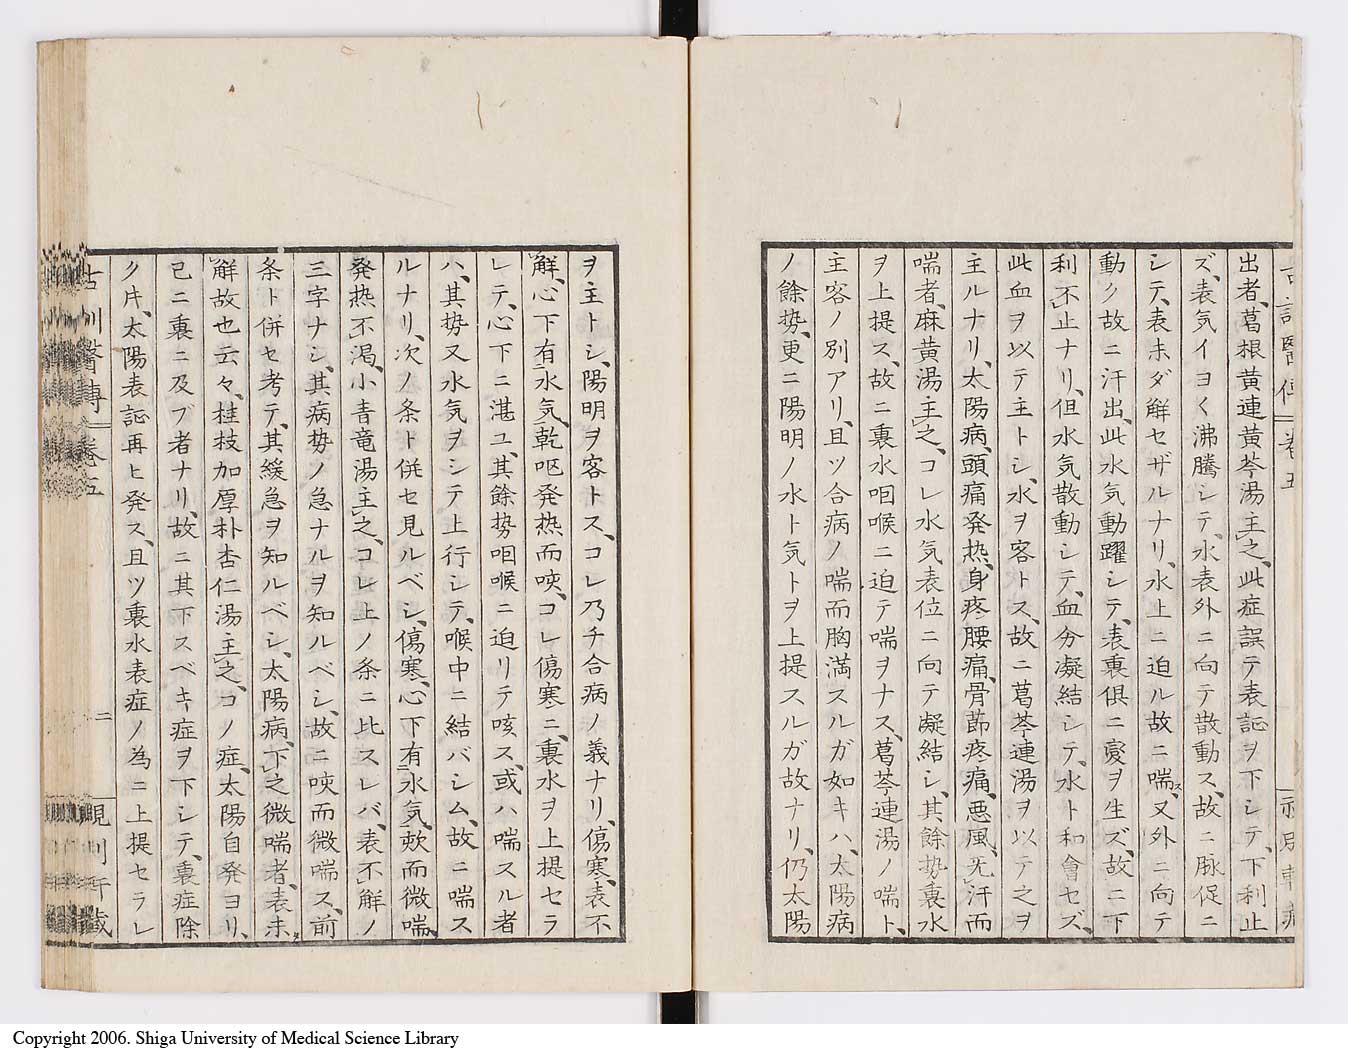 出者、葛根黄連黄芩湯主之、此症誤テ表証ヲ下シテ、下利止
ズ、表気イヨく沸騰シテ、水表外ニ向テ散動ス、故ニ脉促ニ
シテ、表未ダ解セザルナリ、水上ニ迫ル故ニ喘ス、又外ニ向テ
動ク故ニ汗出、此水気動躍シテ、表裏倶ニ変ヲ生ズ、故ニ下
利不止ナリ、但水気散動シテ、血分凝結シテ、水ト和會セズ、
此血ヲ以テ主トシ、水ヲ客トス、故ニ葛芩連湯ヲ以テ之ヲ
主ルナリ、太陽病、頭痛発热、身疼腰痛、骨莭疼痛、悪風、无汗而
喘者、麻黄湯主之、コレ水気表位ニ向テ凝結シ、其餘势裏水
ヲ上提ス、故ニ裏水咽喉ニ迫テ喘ヲナス、葛芩連湯ノ喘ト、
主客ノ別アリ、且ツ合病ノ喘而胸満スルガ如キハ、太陽病
ノ餘势、更ニ陽明ノ水ト気トヲ上提スルガ故ナリ、仍太陽
ヲ主トシ、陽明ヲ客トス、コレ乃チ合病ノ義ナリ、傷寒、表不
解、心下有水気、乾呕発热而咳、コレ傷寒ニ、裏水ヲ上提セラ
レテ、心下ニ湛ユ、其餘势咽喉ニ迫リテ咳ス、或ハ喘スル者
ハ、其势又水気ヲシテ上行シテ、喉中ニ結バシム、故ニ喘ス
ルナリ、次ノ条ト併セ見ルベシ、傷寒、心下有水気、欬而微喘、
発热不渇、小青竜湯主之、コレ上ノ条ニ比スレバ、表不解ノ
三字ナシ、其病势ノ急ナルヲ知ルベシ、故ニ咳而微喘ス、前
条ト併セ考テ、其緩急ヲ知ルベシ、太陽病、下之微喘者、表未タ
解故也云々、桂枝加厚朴杏仁湯主之、コノ症、太陽自発ヨリ、
已ニ裏ニ及ブ者ナリ、故ニ其下スベキ症ヲ下シテ、裏症除
ク片、太陽表証再ヒ発ス、且ツ裏水表症ノ為ニ上提セラレ
古訓醫傳 巻五
二
Copyright 2006. Shiga University of Medical Science Library